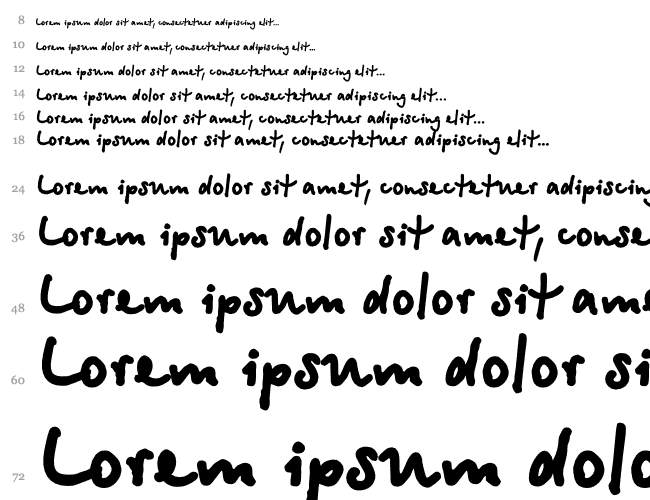 8 Lorem ipsum dolor sit amet, consectetuer adipiscing elit...
10 Lorem ipsum dolor sit amet, consectetuer adipiscing elit...
12 Lorem ipsum dolor sit amet, consectetuer adipiscing elit...
14 Lorem ipsum dolor sit amet, consectetuer adipiscing elit...
16 Lorem ipsum dolor sit amet, consectetuer adipiscing elit...
18 Lorem ipsum dolor sit amet, consectetuer adipiscing elit...
24 Lorem ipsum dolor sit amet, consectetuer adipiscing
36 Lorem ipsum dolor sit amet, conse
48 Lorem ipsum dolor sit ame
60 Lorem ipsum dolor si
72 Lorem ipsum dolo